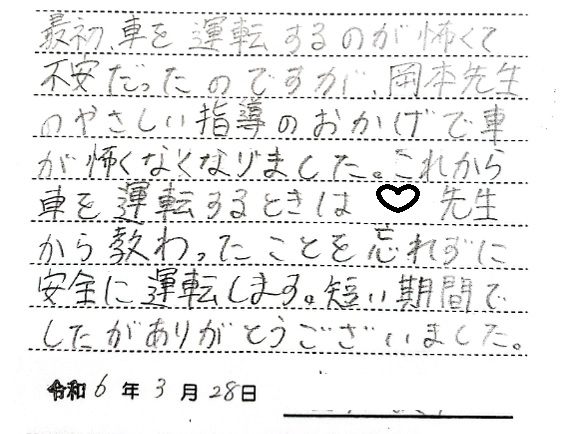 最初、車を運転するのが怖くて
不安だったのですが、岡本先生
のやさしい指導のおかげで車
が怖くなくなりました。これから
車を運転するときは♡先生
から教わったことを忘れずに
安全に運転します。短い期間で
したがありがとうございました。
令和6年3月28日